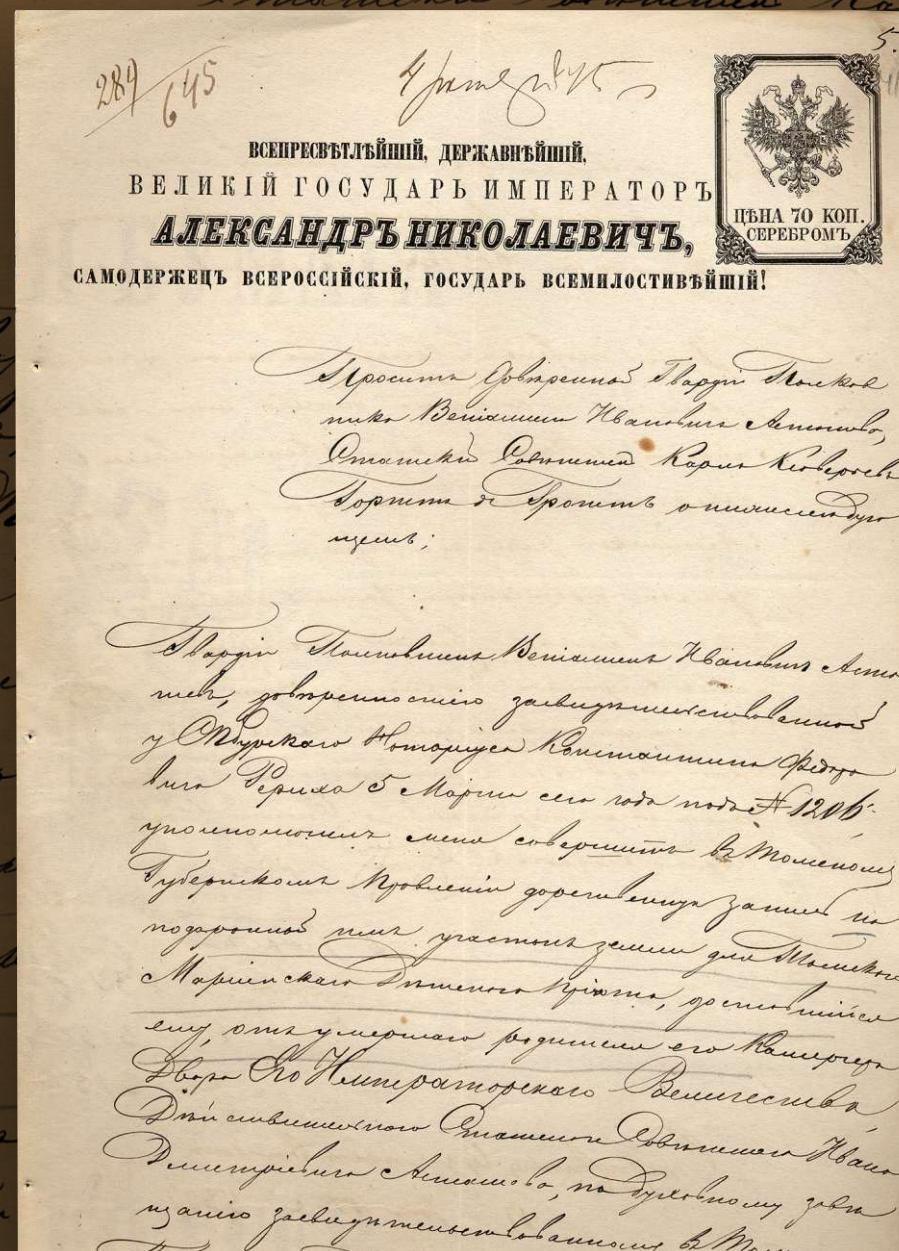 289/645
5.
ВСЕПРЕСВѢТЛѢЙШІЙ, ДЕРЖАВНѢЙШІЙ,
ВЕЛИКІЙ ГОСУДАРЬ ИМПЕРАТОРЪ
АЛЕКСАНДРЪ НИКОЛАЕВИЧЪ,
САМОДЕРЖЕЦЪ ВСЕРОССІЙСКІЙ, ГОСУДАРЬ ВСЕМИЛОСТИВѢЙШІЙ!
ЦѢНА 70 КОП.
СЕРЕБРОМЪ
Проситъ Довѣренный Гвардіи Полков
ника Веніамина Ивановича Асташева,
Статскій Совѣтникъ Карлъ
о нижеслѣдую
щемъ:
Гвардіи Полковникъ Веніаминъ Ивановичъ Аста
шевъ, довѣренностію засвидѣтельствованной
у Нотаріуса Константина Федоро
вича Рериха 5 Марта сего года подъ № 1206
уполномочилъ меня совершить въ Томскомъ
Губернскомъ Правленіи дарственную запись на
подаренной имъ участокъ земли для Томскаго
Маріинскаго Дѣтскаго Пріюта, доставшійся
ему, отъ умершаго родителя его Камергера
Двора Его Императорскаго Величества,
Дѣйствительнаго Статскаго Совѣтника Ивана
Дмитріевича Асташева, по духовному завѣ
щанію засвидѣтельствованному въ